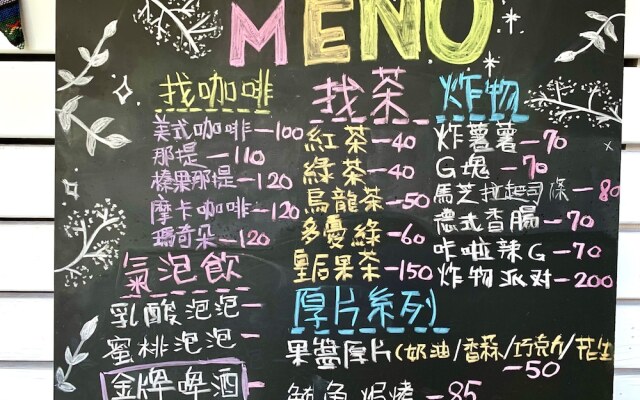 MENU
找咖啡
美式咖啡-100
那提-110
榛果那提-120
摩卡咖啡-120
瑪奇朵-120
氣泡飲
乳酸泡泡-
蜜桃泡泡-
金牌啤酒-
找茶
紅茶-40
綠茶-40
烏龍茶-50
多憂綠-60
皇后果茶-150
炸物
炸薯薯-70
G塊-70
馬芝拉起司條-80
德式香腸-70
咔啦辣G-70
炸物派对-200
厚片系列
果醬厚片(奶油/香蒜/巧克力/花生
-50
鮪魚焗烤-85